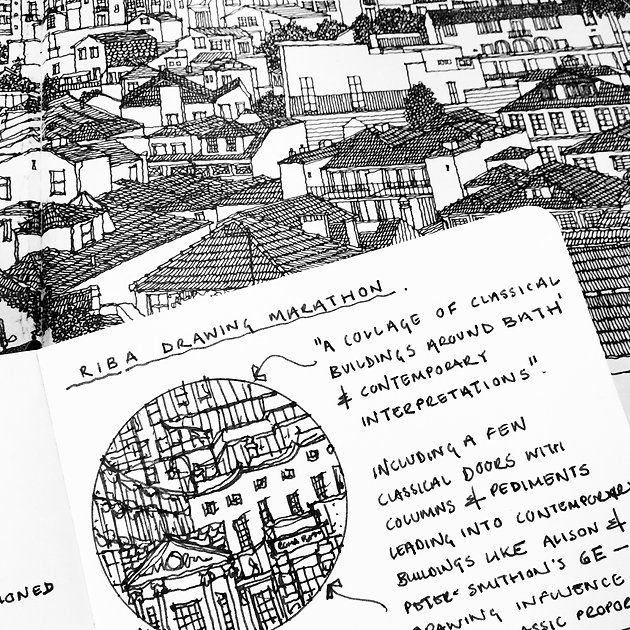 RIBA DRAWING MARATHON.
"A COLLAGE OF CLASSICAL
BUILDINGS AROUND BATH'
& CONTEMPORARY
INTERPRETATIONS".
INCLUDING A FEW
CLASSICAL DOORS WITH
COLUMNS & PEDIMENTS
LEADING INTO CONTEMPORARY
BUILDINGS LIKE ALISON &
PETER SMITHSON'S 6E –
DRAWING INFLUENCE
ASSIC PROPOR
IONED